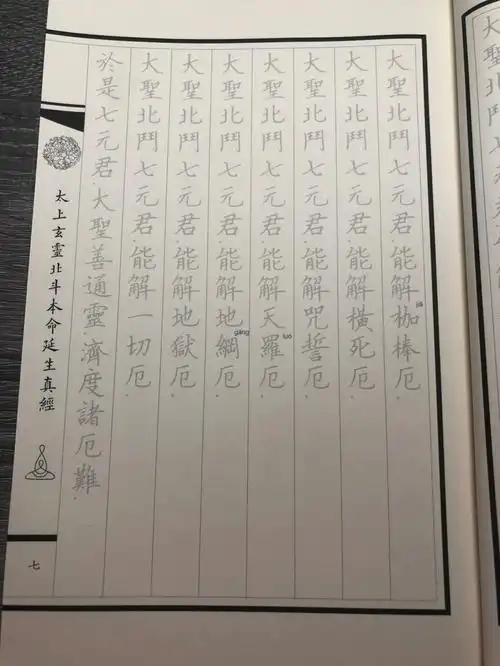 大聖北鬥七元君.能解枷棒厄.
jiā
大聖北鬥七元君.能解橫死厄.
大聖北鬥七元君.能解咒誓厄.
大聖北鬥七元君.能解天羅厄.
luó
大聖北鬥七元君.能解地網厄.
gāng
大聖北鬥七元君.能解地獄厄.
大聖北鬥七元君.能解一切厄.
於是七元君.大聖善通靈.濟度諸厄難.
太上玄靈北斗本命延生真經
七